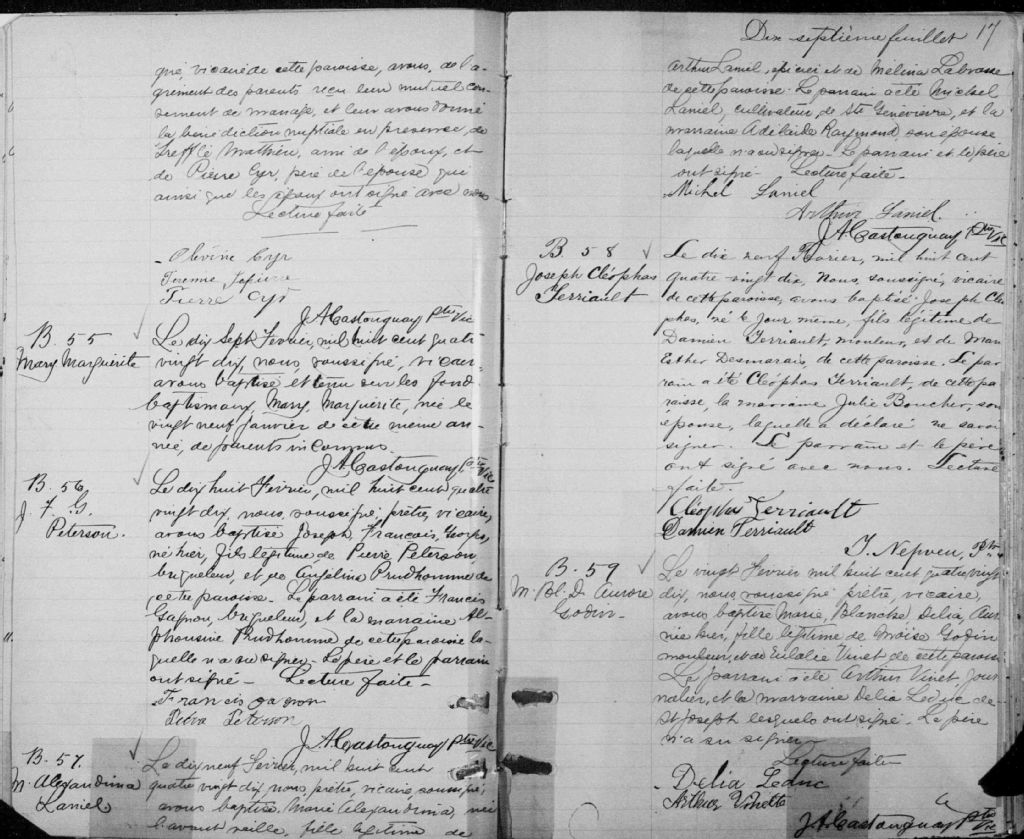 qué, vicaire de cette paroisse, avons, de l'a-
grement des parents reçu leur mutuel con-
sentement de mariage, et leur avons donné
la bénédiction nuptiale en presence, de
Trefflé Mathieu, ami de l'époux, et
de Pierre Cyr, père de l'épouse qui
ainsi que les époux ont signé avec nous
Lecture faite
Olivine Cyr
Pierre Cyr
J A Castonguay Ptre Vic
B. 55
Mary Marguerite
Le dix sept Fevrier, mil huit cent quatre
vingt dix, nous, soussigné, vicaire
avons baptisé et tenu sur les fonds
baptismaux, Mary, Marguerite, née le
vingt neuf Janvier de cette même an-
née, de parents inconnus.
J. A. Castonguay Ptre Vic
B. 56
J. F. G.
Peterson.
Le dix huit Fevrier, mil huit cent quatre
vingt dix, nous, soussigné, prêtre, vicaire,
avons baptisé Joseph Francois, Georges,
né hier, fils légitime de Pierre Peterson,
briqueleur, et de Anjelina Prudhomme de
cette paroisse. Le parrain a été Francis
Gagnon, briqueleur, et la marraine Al-
phonsine Prudhomme de cette paroisse la-
quelle n'a su signer - Le père et le parrain
ont signé - Lecture faite -
Francis gagnon
Peterson
J. A. Castonguay Ptre Vic
B. 57.
M. Alexandrina
Laniel
Le dix neuf Fevrier, mil huit cent
quatre vingt dix, nous, prêtre, vicaire, soussigné,
avons baptisé Marie Alexandrina, née
l'avant veille, fille légitime de
Dix septième feuillet 17
Arthur Laniel, épicier et de Mélina Labrosse
de cette paroisse. Le parrain a été Michel
Laniel, cultivateur, de Ste Geneviève, et la
marraine Adélaide Raymond son épouse
laquelle n'a su signer - Le parrain et le père
ont signé - Lecture faite -
Michel Laniel
Arthur Laniel.
J A Castonguay Ptre Vic
B. 58
Joseph Cléophas
Terriault
Le dix neuf Février, mil huit cent
quatre vingt dix, Nous, soussigné, vicaire
de cette paroisse, avons baptisé Joseph Cléo-
phas, né le jour même, fils légitime de
Damien Terriault, mouleur, et de
Esther Desmarais, de cette paroisse. Le par-
rain a été Cléophas Terriault, de cette pa-
roisse, la marraine Julie Boucher, son
épouse, laquelle a déclaré ne savoir
signer. Le parrain et le père
ont signé avec nous. Lecture
faite.
Cléophas Terriault
Damien Terriault
J. Nepveu, Ptre
B. 59
M. Bl. D. Aurore
Godin -
Le vingt Fevrier mil huit cent quatre vingt
dix, nous soussigné prêtre, vicaire,
avons baptisé Marie, Blanche Delia, Aurore
née hier, fille légitime de Moïse Godin
mouleur, et de Eulalie Vinet de cette paroisse
Le parrain a été Arthur Vinet, jour-
nalier, et la marraine Delia Leduc de
St Joseph lesquels ont signé. Le père
n'a su signer
Lecture faite
Délia Leduc
Arthur Vinette
J. A. Castonguay Ptre Vic